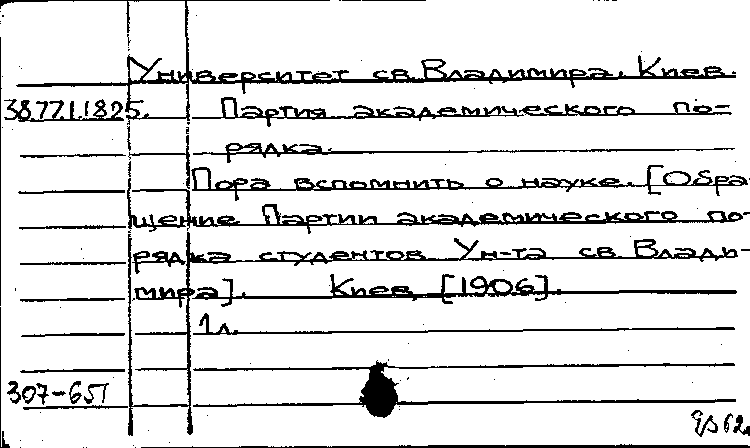 Университет св. Владимира. Киев.
38.77.1.1825. Партия академического по=
рядка.
Пора вспомнить о науке. [Обра-
щение Партии академического по-
рядка студентов Ун-та св. Влади-
мира]. Киев, [1906].
1 л.
307-651